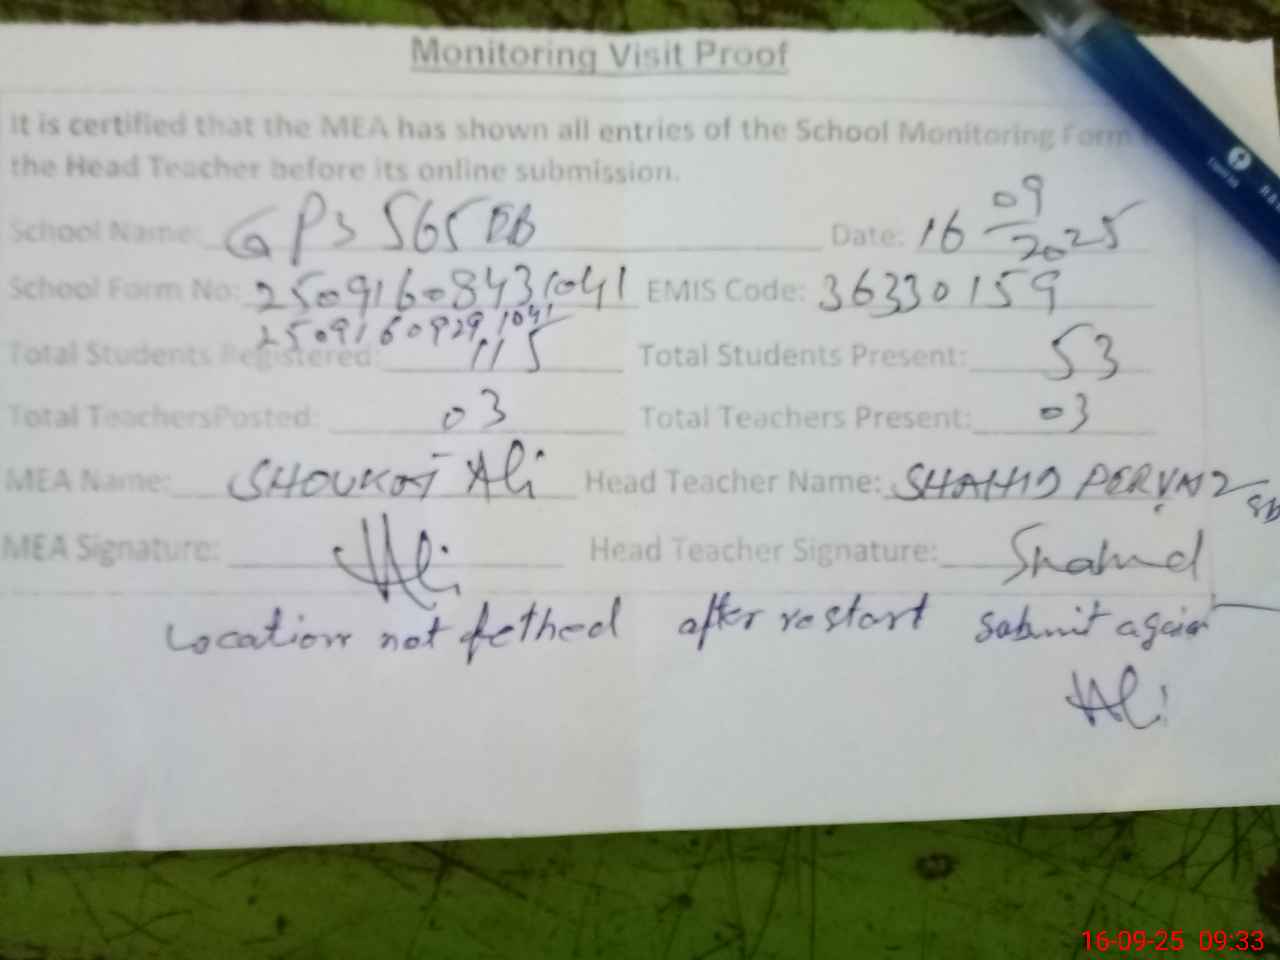 Monitoring Visit Proof
It is certified that the MEA has shown all entries of the School Monitoring Form
the Head Teacher before its online submission.
School Name: GPS 565 EB Date: 16 09 2025
School Form No: 25091608431041 EMIS Code: 36330159
25091609291041
Total Students Registered: 115 Total Students Present: 53
Total TeachersPosted: 03 Total Teachers Present: 03
MEA Name: SHOUKAT Ali Head Teacher Name: SHAHID PERVAIZ
MEA Signature: Ali Head Teacher Signature: Shahid
Location not fethed after restart submit again
Ali
16-09-25 09:33